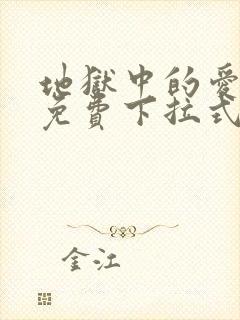 地獄中的愛
免費下拉式
金江